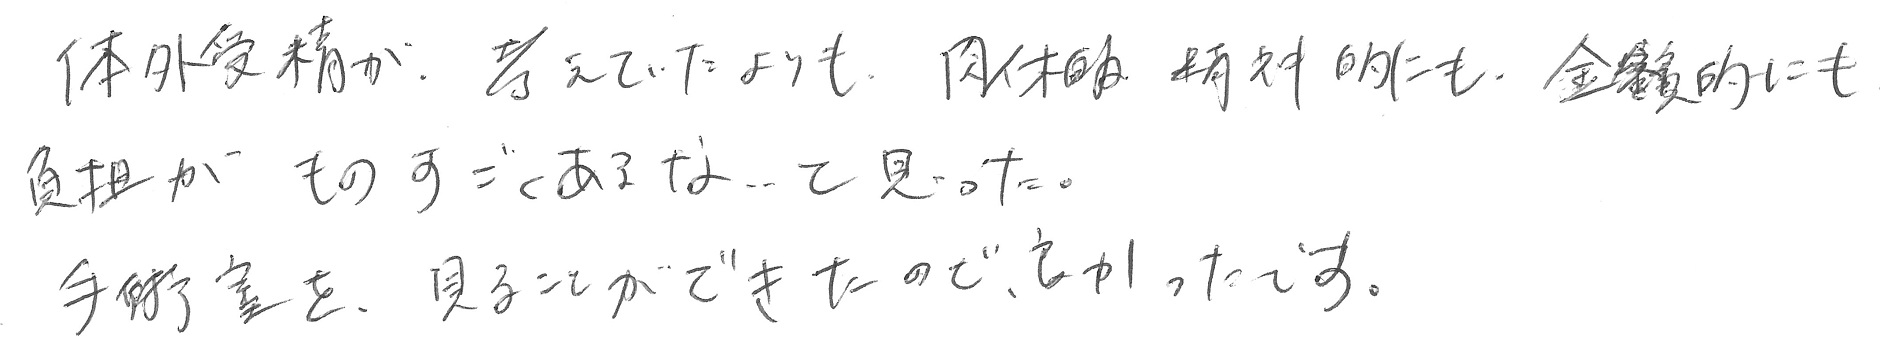 体外受精が、考えていたよりも、肉体的 精神的にも、金額的にも
負担が ものすごくあるな…と思った。
手術室を、見ることができたので、良かったです。